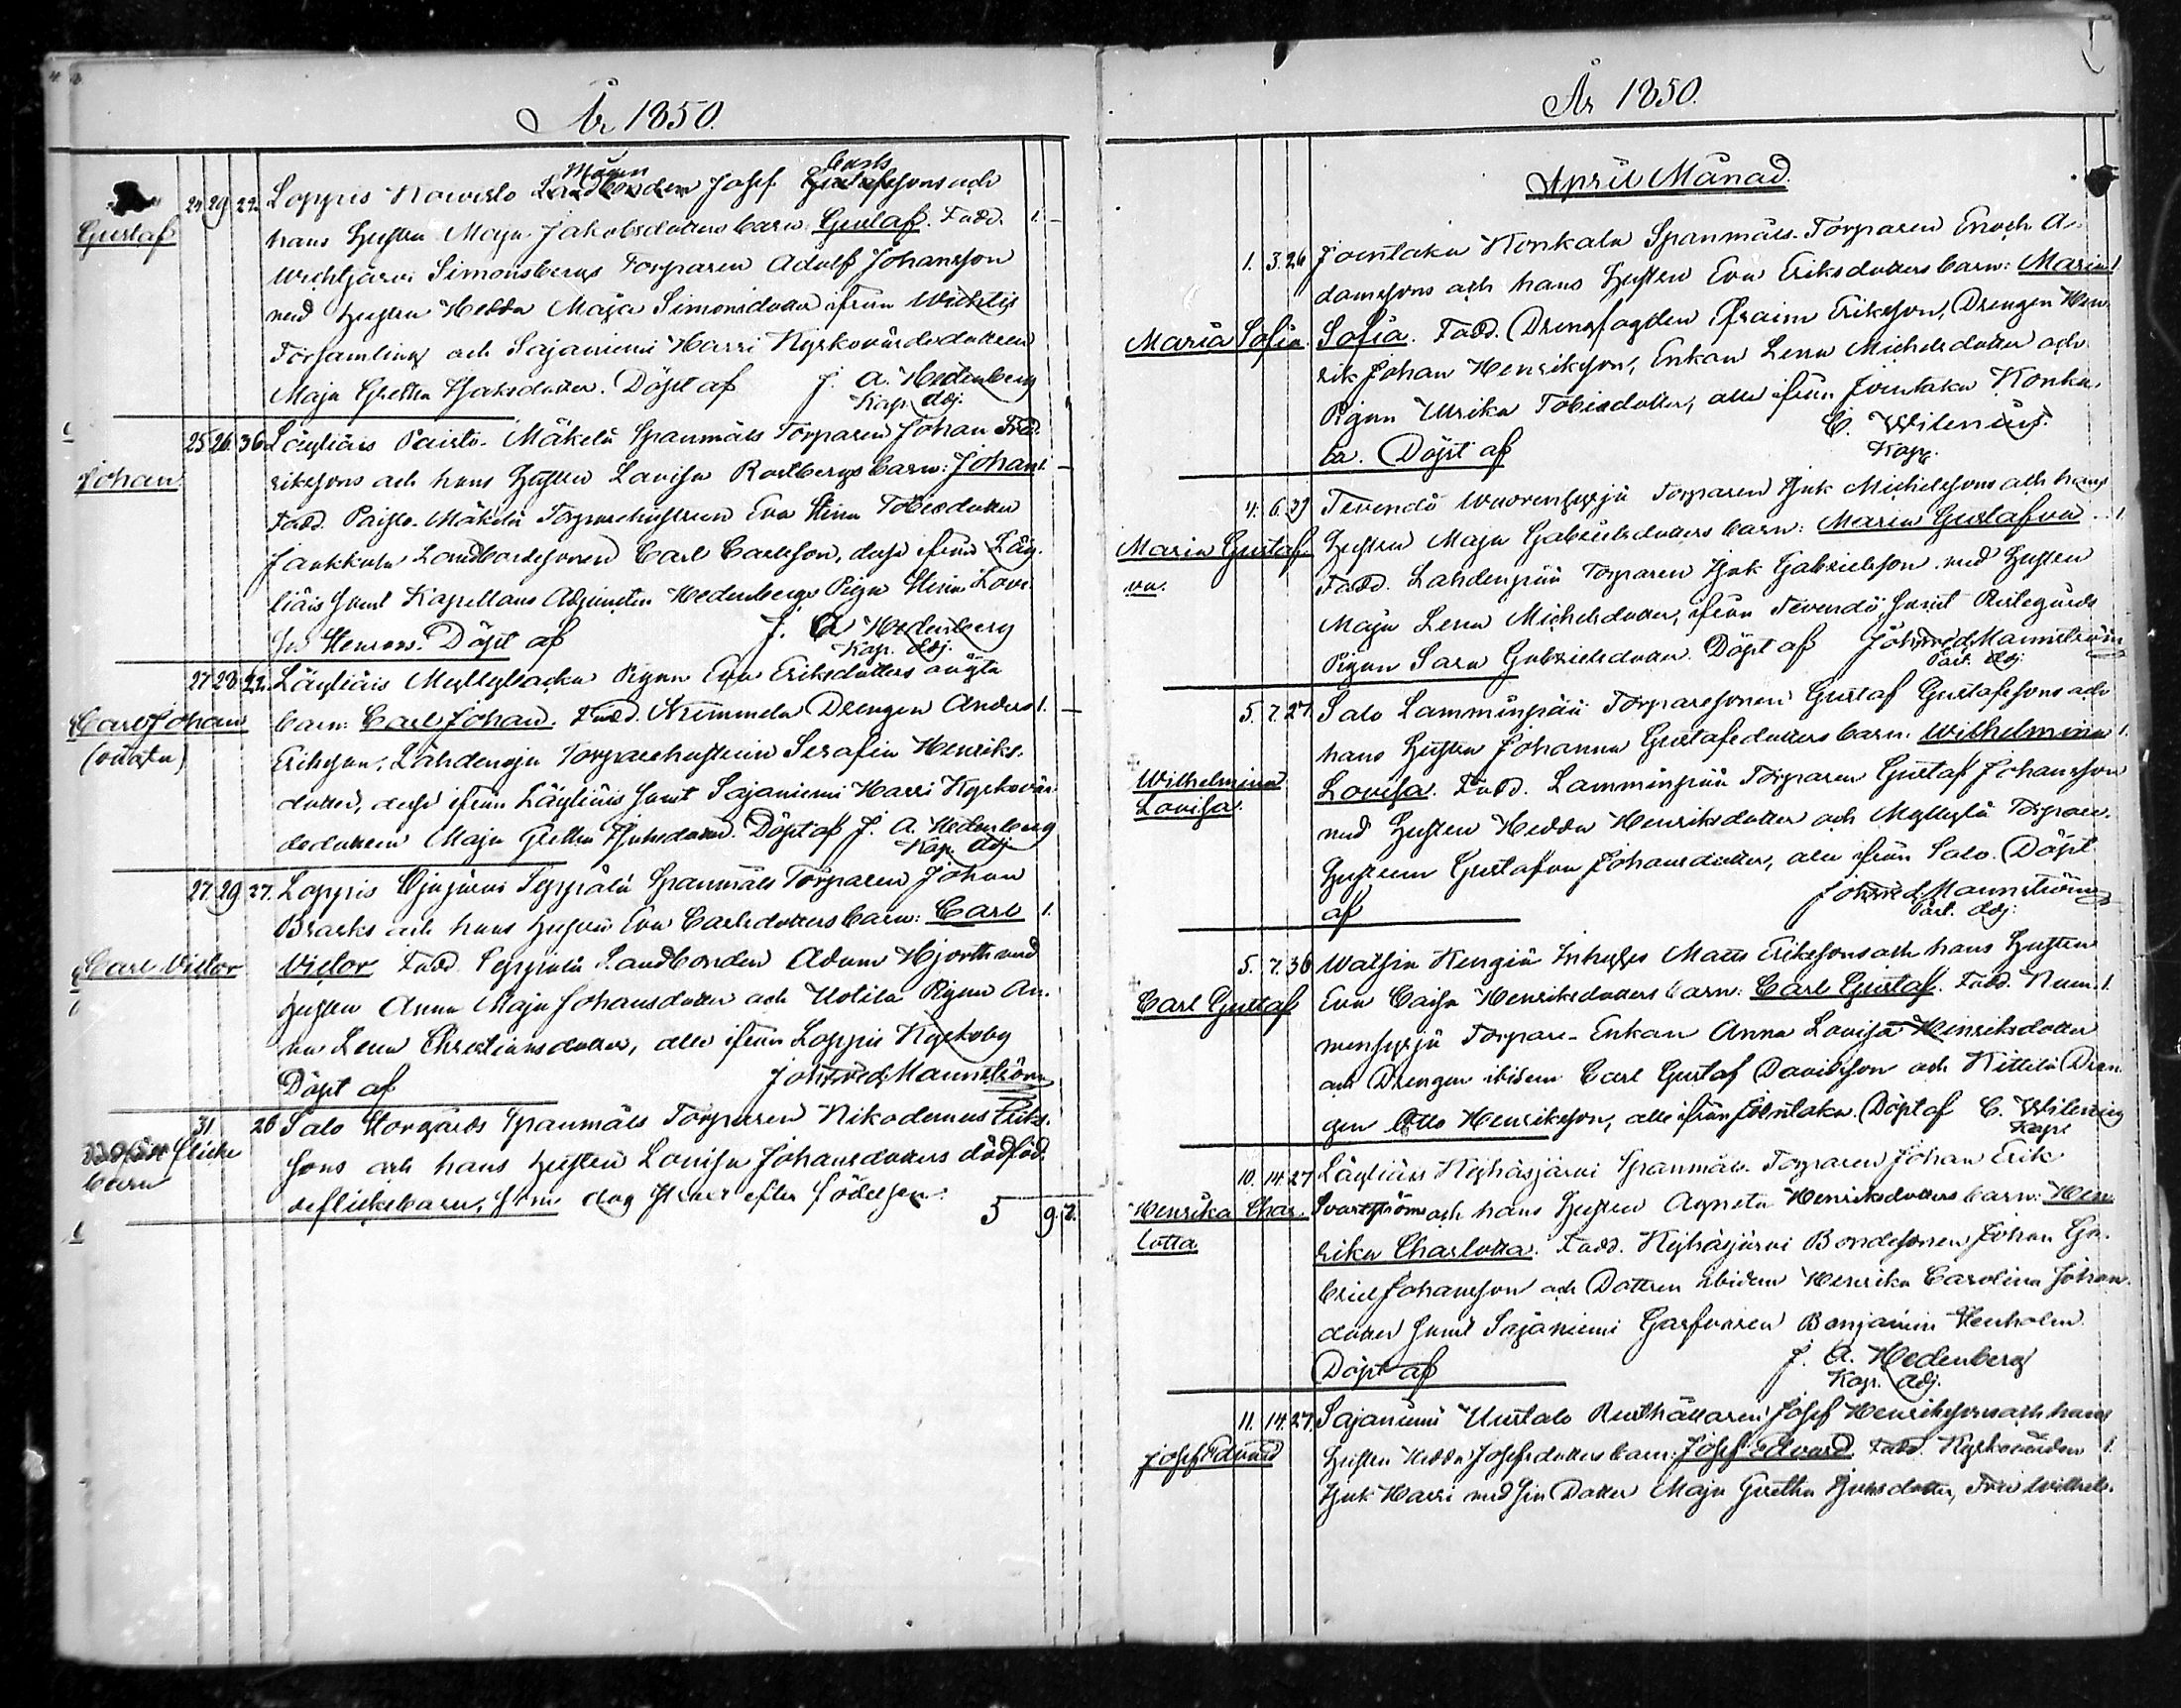 År 1850.
Gustaf
24. 29. 22. Loppis Mågen Landbonden Josef Carls Gustafssons och
hans hustru Maja Jakobsdotters barn Gustaf. Fadd. 1.
Wichtjärvi Simonsbergs Torparen Adolf Johansson
med hustru Hedda Maja Simonsdotter ifrån Wichtis
Församling och Sajaniemi Harri Kyrkovärdsdottren
Maja Gretha Isaksdotter. Döpt af J. A. Hedenberg
Kap. Adj.
Johan
25. 26. 36. Läyliäis Paisto-Mäkelä Spanmåls Torparen Johan Fred-
rikssons och hans hustru Lovisa Rostbergs barn: Johan 1.
Fadd. Paisto-Mäkelä Torparehustrun Eva Stina Tobiasdotter
Jankkala Landbondesonen Carl Carlsson, desse ifrån Läy-
liäis samt Kapellans Adjuncten Hedenbergs Piga Stina Lovi-
sa Stenroos. Döpt af J. A. Hedenberg
Kap. Adj.
Carl Johan
(oäkta)
27. 28. 22. Läyliäis Myllylacka Pigan Eva Eriksdotters oägta
barn: Carl Johan. Fadd. Nummela Drengen Anders 1.
Eriksson, Lähdenoja Torparehustrun Serafia Henriks-
dotter, desse ifrån Läyliäis samt Sajaniemi Harri Kyrkovär-
dsdottren Maja Gretha Isaksdotter. Döpt af J. A. Hedenberg
Kap. Adj.
Carl Victor
27. 29. 27. Loppis Ojajärvi Seppälä Spanmåls Torparen Johan
Bracks och hans hustru Eva Carlsdotters barn: Carl 1.
Victor Fadd. Seppälä Landbonden Adam Hjorth med
hustru Anna Maja Johansdotter och Uotila Pigan An-
na Lena Christiansdotter, alla ifrån Loppis Kyrkoby
Döpt af Joh Fredr Mannström
flicke
barn
31. 26 Salo Storgårds Spanmåls Torparen Nikodemus Eriks-
sons och hans hustru Lovisa Johansdotters dödföd-
de flickebarn, som dog efter födelsen.
5 9. 7.
År 1850.
April Månad.
Maria Sofia.
1. 3. 26 Joentaka Konkala Spanmåls-Torparen Enoch A-
damssons och hans hustru Eva Eriksdotters barn: Maria 1.
Sofia. Fadd. Drengfogden Efraim Eriksson, Drengen Hen-
rik Johan Henriksson, Enkan Lena Michelsdotter och
Pigan Ulrika Tobiasdotter, alla ifrån Joentaka Konka-
la. Döpt af C. Wilenius.
Kapl.
Maria Gustaf-
va.
4. 6. 29 Tevendö Wuorenpyrjä Torparen Isak Michelssons och hans
hustru Maja Gabrielsdotters barn: Maria Gustafva 1.
Fadd. Lahdenpää Torparen Isak Gabrielsson med hustru
Maja Lena Michelsdotter, ifrån Tevendö samt Prestegårds
Pigan Sara Gabrielsdotter. Döpt af Joh Fredr Mannström
Past. Adj.
Wilhelmina
Lovisa.
5. 7. 27. Salo Lamminpää Torparesonen Gustaf Gustafssons och
hans hustru Johanna Gustafsdotters barn. Wilhelmina 1.
Lovisa. Fadd. Lamminpää Torparen Gustaf Johansson
med hustru Hedda Henriksdotter och Myllylä Torpare-
hustrun Gustafva Johansdotter, alla ifrån Salo. Döpt
af Joh Fredr Mannström
Past. Adj.
Carl Gustaf
5. 7. 36 Watsia Kengiä Inhyses Matts Erikssons och hans hustru
Eva Caisa Henriksdotters barn: Carl Gustaf. Fadd. Num- 1.
menpyrjä Torpare-Enkan Anna Lovisa Henriksdotter
och Drengen ibidem Carl Gustaf Davidsson och Kittilä Dren-
gen Otto Henriksson, alla ifrån Joentaka. Döpt af C. Wilenius
Kapl
Henrika Char-
lotta
10. 14. 27 Läyliäis Keihäsjärvi Spanmåls Torparen Johan Erik
Svartström och hans hustru Agneta Henriksdotters barn: Hen-
rika Charlotta. Fadd. Keihäsjärvi Bondesonen Johan Ga-
briel Johansson och Dottren ibidem Henrika Carolina Johans-
dotter samt Sajaniemi Garfvaren Benjamin Stenholm.
Döpt af J. A. Hedenberg
Kap. Adj.
Josef Edvard
11. 14. 27. Sajaniemi Uustalo Rusthållaren Josef Henrikssons och hans
hustru Hedda Josefsdotters barn: Josef Edvard. Fadd. Kyrkovärden 1.
Isak Harri med sin Dotter Maja Gretha Isaksdotter,